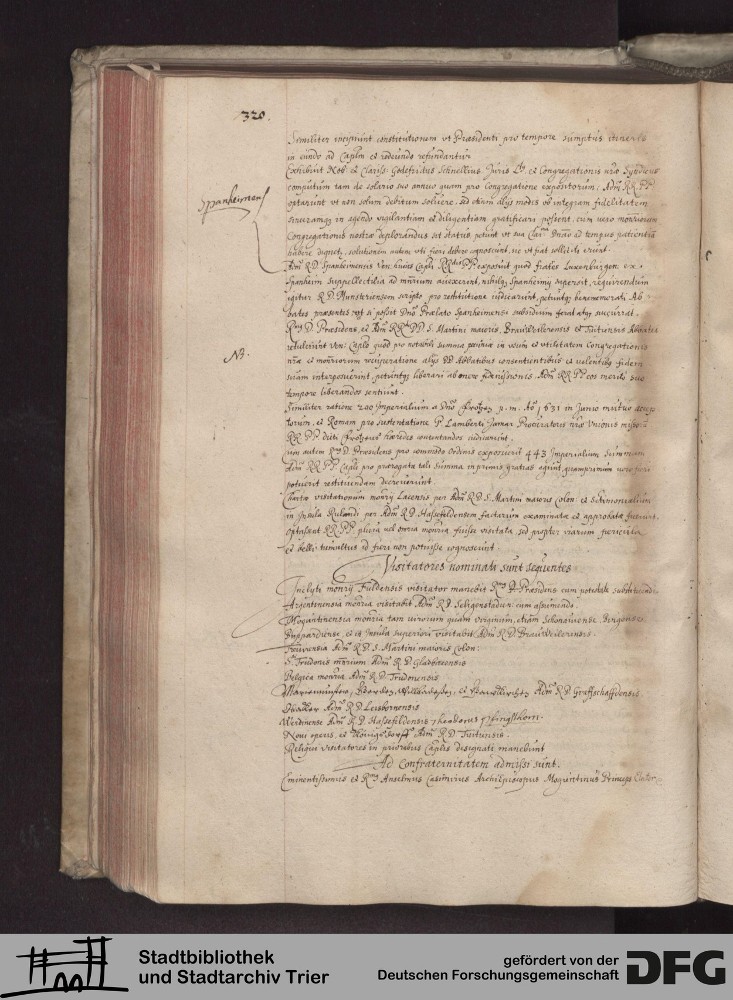 320.
Similiter incipiunt constitutionem vt Præsidenti pro tempore sumptus itineris
in eundo ad Caplm et redeundo refundantur
Exhibuit Nob. et Clariss. Godefridus Schnellius Juris Lt. et Congregationis nræ Syndicus
computum tam de solario suo annuo quam pro Congregatione expositorum; Adm RR PP
optarunt vt non solum debitum soluere, sed etiam alijs modis ob integram fidelitatem
synceramq in agendo vigilantiam et diligentiam gratificari possent, cum vero monriorum
Spanheimens
Congregationis nostræ deplorandus sit status, petunt vt sua ad tempus patientiā
habere dignetr, solutionem autem vti fieri debere cognoscunt, sic vt fiat solliciti erunt.
Adm R.D. Spanheimensis Ven. huius Capli RRdis PP. exposuit quod frater Luxenburgen. ex
Spanheim supellectilia ad mnrium auexerit, nihilq Spanheimij supersit, requirendum
igitur R.D. Munsteriensem scripto pro restitutione iudicarunt, petuntq benememorati Ab
bates præsentes vt si possit Dno Prælato Spanheimensi subsidium ferat atq succurrat.
Rmus D. Præsidens, et Adm RRdi PP. S. Martini maioris, Brauwilerensis et Tuitiensis Abbates
NB.
retulerunt Ven: Caplo quod pro notabili summa pecuniæ in vsum et vtilitatem Congregationis
nræ et monriorum recuperatione alijs DD Abbatibus consentientibus et volentibus fidem
suam interposuerint, petuntq liberari ab onere fideiussionis. Adm RR PP. eos merito suo
tempore liberandos sentiunt.
Similiter ratione 200 Imperialium a Dno p. m. Ao 1631 in Junio mutuo accep
torum, et Romam pro sustentatione P. Lamberti Jamar Procuratoris nræ Vnionis
RR PP. dicti hæredes contentandos iudicarunt.
Cum autem Rmus D. Præsidens pro commodo Ordinis exposuerit 443 Imperialium summam
Adm RR PP. Capli pro prærogata tali summa in primis gratias agunt, quamprimum vero fieri
poterit restituendam decreuerunt.
Chartæ visitationum monrij Lacensis per Adm R.D. S. Martini maioris Colon. et
in Insula Rulandi per Adm R.D. Hassefeldensem factarum examinatæ et approbatæ fuerunt.
optassent RR. PP. plura vel omnia monria fuisse visitata sed propter viarum pericula
et belli tumultus id fieri non potuisse cognoscunt.
Visitatores nominati sunt sequentes
Inclyti monrij Fuldensis visitator manebit Rmus D. Præsidens cum potestate substituendi.
Argentinensia monria visitabit Adm R.D. Seligenstaden: cum assumendo.
Moguntinensia monria tam virorum quam virginum, etiam Schonauiense Bingense
Puppardiense, et ex Insula superiori visitabit Adm R.D. Brauwilerensis.
Treuirensia Adm R.D. S. Martini maioris Colon:
S. Trudonis mnrium Adm R.D. Gladbacensis
Belgica monria Adm R.D. Trudonensis
Marienmünster, Willebadessen, et Adm R.D. Graffschaffdensis.
Adm R.D. Leisbornensis
Werdinense Adm R.D. Hassefeldensis Theodorus
Noui operis, et Königsdorff Adm R.D. Tuitiensis.
Reliqui visitatores in prioribus Caplis designati manebunt
Ad Confraternitatem admissi sunt.
Eminentissimus et Rmus Anselmus Casimirus Archiepiscopus Moguntinus Princeps Elector
Stadtbibliothek
und Stadtarchiv Trier
gefördert von der
Deutschen Forschungsgemeinschaft
DFG